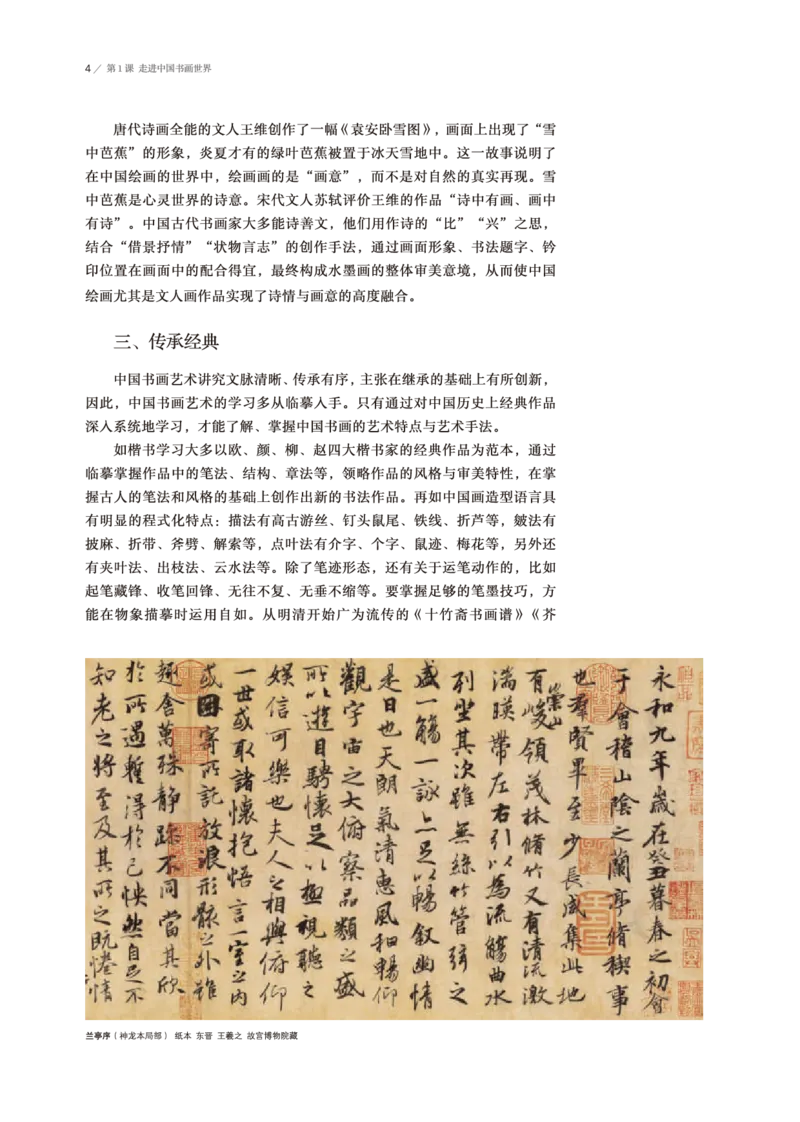 4 / 第1课 走进中国书画世界
唐代诗画全能的文人王维创作了一幅《袁安卧雪图》，画面上出现了“雪
中芭蕉”的形象，炎夏才有的绿叶芭蕉被置于冰天雪地中。这一故事说明了
在中国绘画的世界中，绘画画的是“画意”，而不是对自然的真实再现。雪
中芭蕉是心灵世界的诗意。宋代文人苏轼评价王维的作品“诗中有画、画中
有诗”。中国古代书画家大多能诗善文，他们用作诗的“比”“兴”之思，
结合“借景抒情”“状物言志”的创作手法，通过画面形象、书法题字、钤
印位置在画面中的配合得宜，最终构成水墨画的整体审美意境，从而使中国
绘画尤其是文人画作品实现了诗情与画意的高度融合。
三、传承经典
中国书画艺术讲究文脉清晰、传承有序，主张在继承的基础上有所创新，
因此，中国书画艺术的学习多从临摹入手。只有通过对中国历史上经典作品
深入系统地学习，才能了解、掌握中国书画的艺术特点与艺术手法。
如楷书学习大多以欧、颜、柳、赵四大楷书家的经典作品为范本，通过
临摹掌握作品中的笔法、结构、章法等，领略作品的风格与审美特性，在掌
握古人的笔法和风格的基础上创作出新的书法作品。再如中国画造型语言具
有明显的程式化特点：描法有高古游丝、钉头鼠尾、铁线、折芦等，皴法有
披麻、折带、斧劈、解索等，点叶法有介字、个字、鼠迹、梅花等，另外还
有夹叶法、出枝法、云水法等。除了笔迹形态，还有关于运笔动作的，比如
起笔藏锋、收笔回锋、无往不复、无垂不缩等。要掌握足够的笔墨技巧，方
能在物象描摹时运用自如。从明清开始广为流传的《十竹斋书画谱》《芥
永和九年歲在癸丑暮春之初會
于會稽山陰之蘭亭脩禊事
也羣賢畢至少長咸集此地
有崇山峻領茂林脩竹又有清流激
湍暎帶左右引以為流觴曲水
列坐其次雖無絲竹管弦之
盛一觴一詠亦足以暢敘幽情
是日也天朗氣清惠風和暢仰
觀宇宙之大俯察品類之盛
所以遊目騁懷足以極視聽之
娛信可樂也夫人之相與俯仰
一世或取諸懷抱悟言一室之內
或因寄所託放浪形骸之外雖
趣舍萬殊靜躁不同當其欣
於所遇暫得於己怏然自足不
知老之將至及其所之既惓情
兰亭序（神龙本局部） 纸本 东晋 王羲之 故宫博物院藏